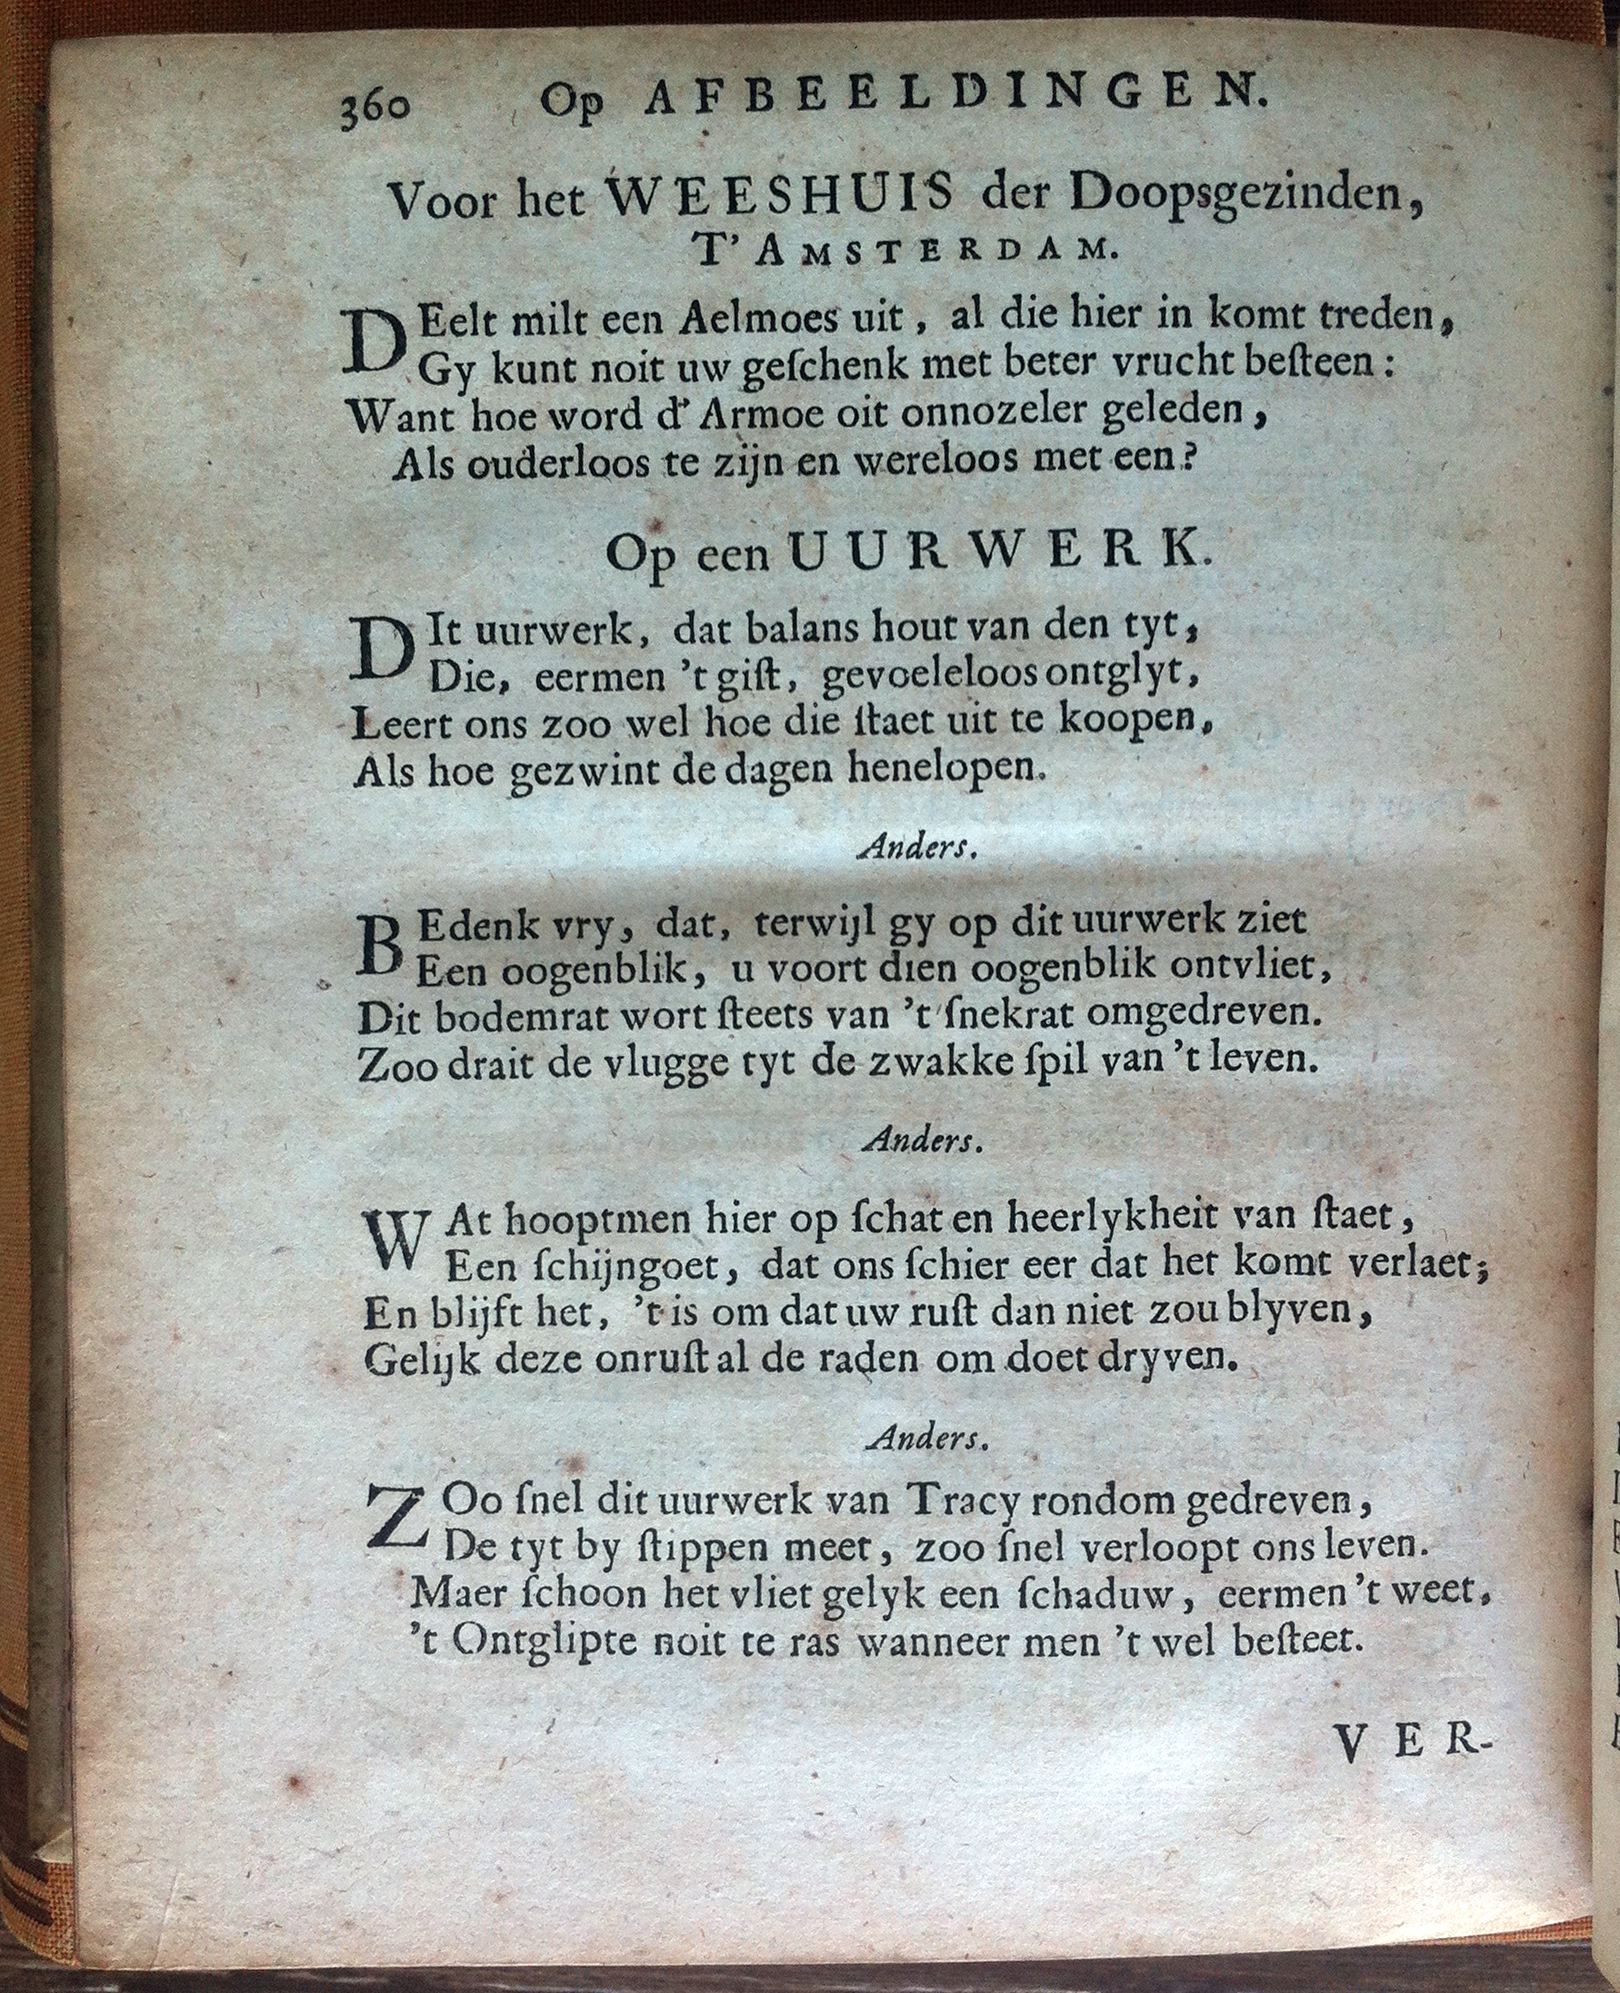 360 Op AFBEELDINGEN.
Voor het WEESHUIS der Doopsgezinden,
T'AMSTERDAM.
DEelt milt een Aelmoes uit, al die hier in komt treden,
Gy kunt noit uw geſchenk met beter vrucht beſteen:
Want hoe word d' Armoe oit onnozeler geleden,
Als ouderloos te zijn en wereloos met een?
Op een UURWERK.
DIt uurwerk, dat balans hout van den tyt,
Die, eermen 't giſt, gevoeleloos ontglyt,
Leert ons zoo wel hoe die ſtaet uit te koopen,
Als hoe gezwint de dagen henelopen.
Anders.
BEdenk vry, dat, terwijl gy op dit uurwerk ziet
Een oogenblik, u voort dien oogenblik ontvliet,
Dit bodemrat wort ſteets van 't ſnekrat omgedreven.
Zoo drait de vlugge tyt de zwakke ſpil van 't leven.
Anders.
WAt hooptmen hier op ſchat en heerlykheit van ſtaet,
Een ſchijngoet, dat ons ſchier eer dat het komt verlaet;
En blijft het, 't is om dat uw ruſt dan niet zou blyven,
Gelijk deze onruſt al de raden om doet dryven.
Anders.
ZOo ſnel dit uurwerk van Tracy rondom gedreven,
De tyt by ſtippen meet, zoo ſnel verloopt ons leven.
Maer ſchoon het vliet gelyk een ſchaduw, eermen 't weet,
't Ontglipte noit te ras wanneer men 't wel beſteet.
VER-